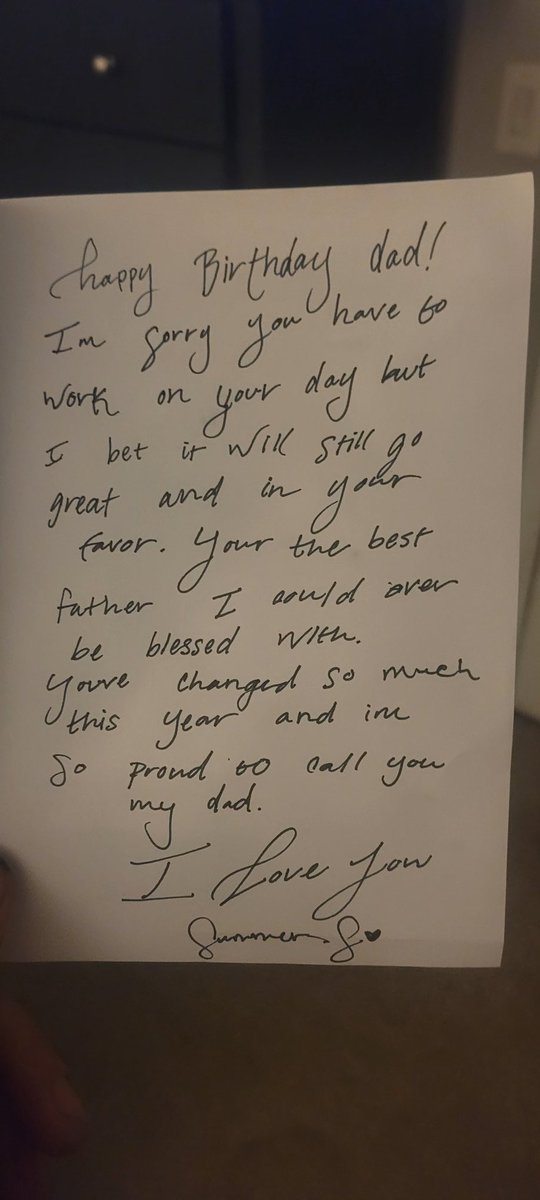 happy Birthday dad!
I'm sorry you have to
work on your day but
I bet it will still go
great and in your
favor. Your the best
father I could ever
be blessed with.
Youve changed so much
this year and im
So proud to call you
my dad.
I Love You
Summer S